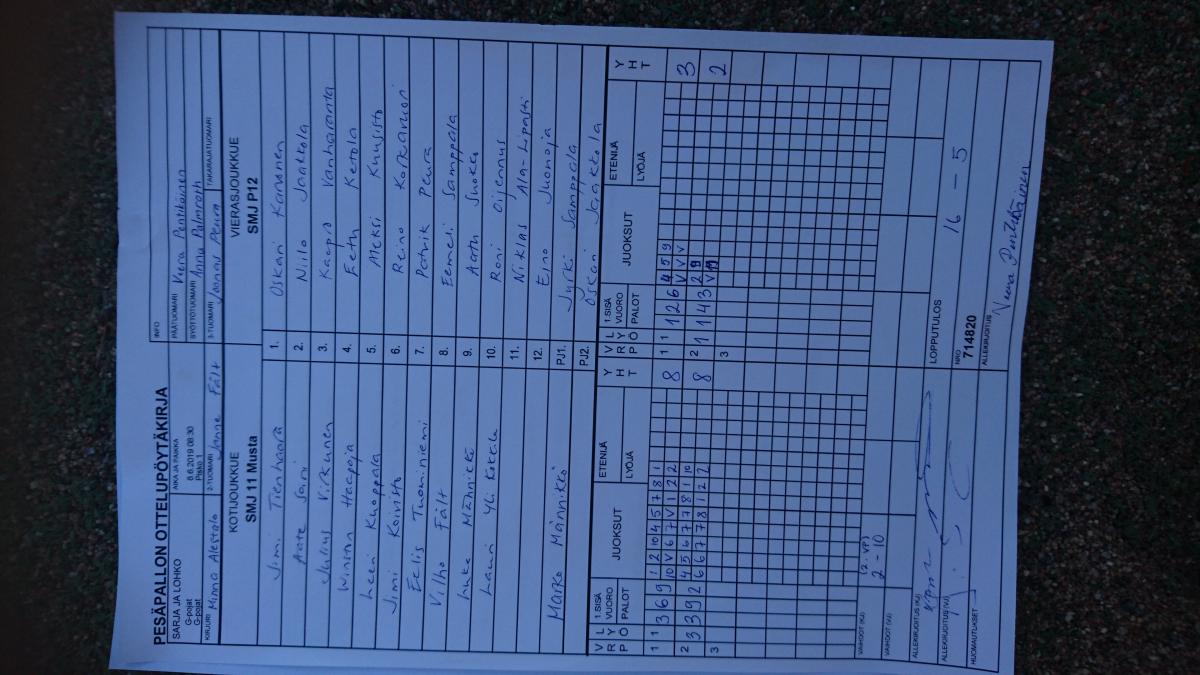 PESÄPALLON OTTELUPÖYTÄKIRJA
SARJA JA LOHKO
G-pojat
G-pojat
AIKA JA PAIKKA
8.6.2019 08:30
Pisko 1
INFO
PÄÄTUOMARI Veera Penttikäinen
SYÖTTÖTUOMARI Annu Palmroth
KIRJURI Minna Alestalo 2-TUOMARI Janne Fält 3-TUOMARI Joonas Peura TAKARAJATUOMARI
KOTIJOUKKUE VIERASJOUKKUE
SMJ 11 Musta SMJ P12
Jimi Tienhaara 1. Oskari Karvonen
Aate Sani 2. Niilo Jaakkola
Julius Virkunen 3. Kaapro Vanharanta
Winston Haapoja 4. Eetu Ketola
Leevi Knoppala 5. Aleksi Kuusisto
Jimi Koivisto 6. Reino Korkavuori
Eelis Tuominiemi 7. Patrik Peura
Vilho Fält 8. Eemeli Samppala
Luka Männikkö 9. Aatu Suokko
Lauri Yli Kokkala 10. Roni Oijennus
11. Niklas Ala-Lipasti
12. Eino Juonoja
Marko Männikkö PJ1. Jyrki Samppala
PJ2. Oskari Jaakkola
V R P L Y Ö 1.SISÄ VUORO PALOT JUOKSUT ETENIJÄ LYÖJÄ Y H T V R P L Y Ö 1.SISÄ VUORO PALOT JUOKSUT ETENIJÄ LYÖJÄ Y H T
1 3 6 9 1 2 10 4 5 7 8 1 8 1 1 1 2 6 4 5 9 3
10 V 6 7 V 1 2 2 V V V
2 3 3 9 2 4 5 6 7 7 8 1 10 8 2 1 1 4 3 2 9 2
6 6 7 7 8 1 2 2 V
3 3
VAIHDOT (KJ) (2. VP) 2 - 10
VAIHDOT (VJ)
ALLEKIRJOITUS (KJ)
LOPPUTULOS 16 - 5
ALLEKIRJOITUS (VJ)
NRO
714820
HUOMAUTUKSET
ALLEKIRJOITUS Veera Penttikäinen